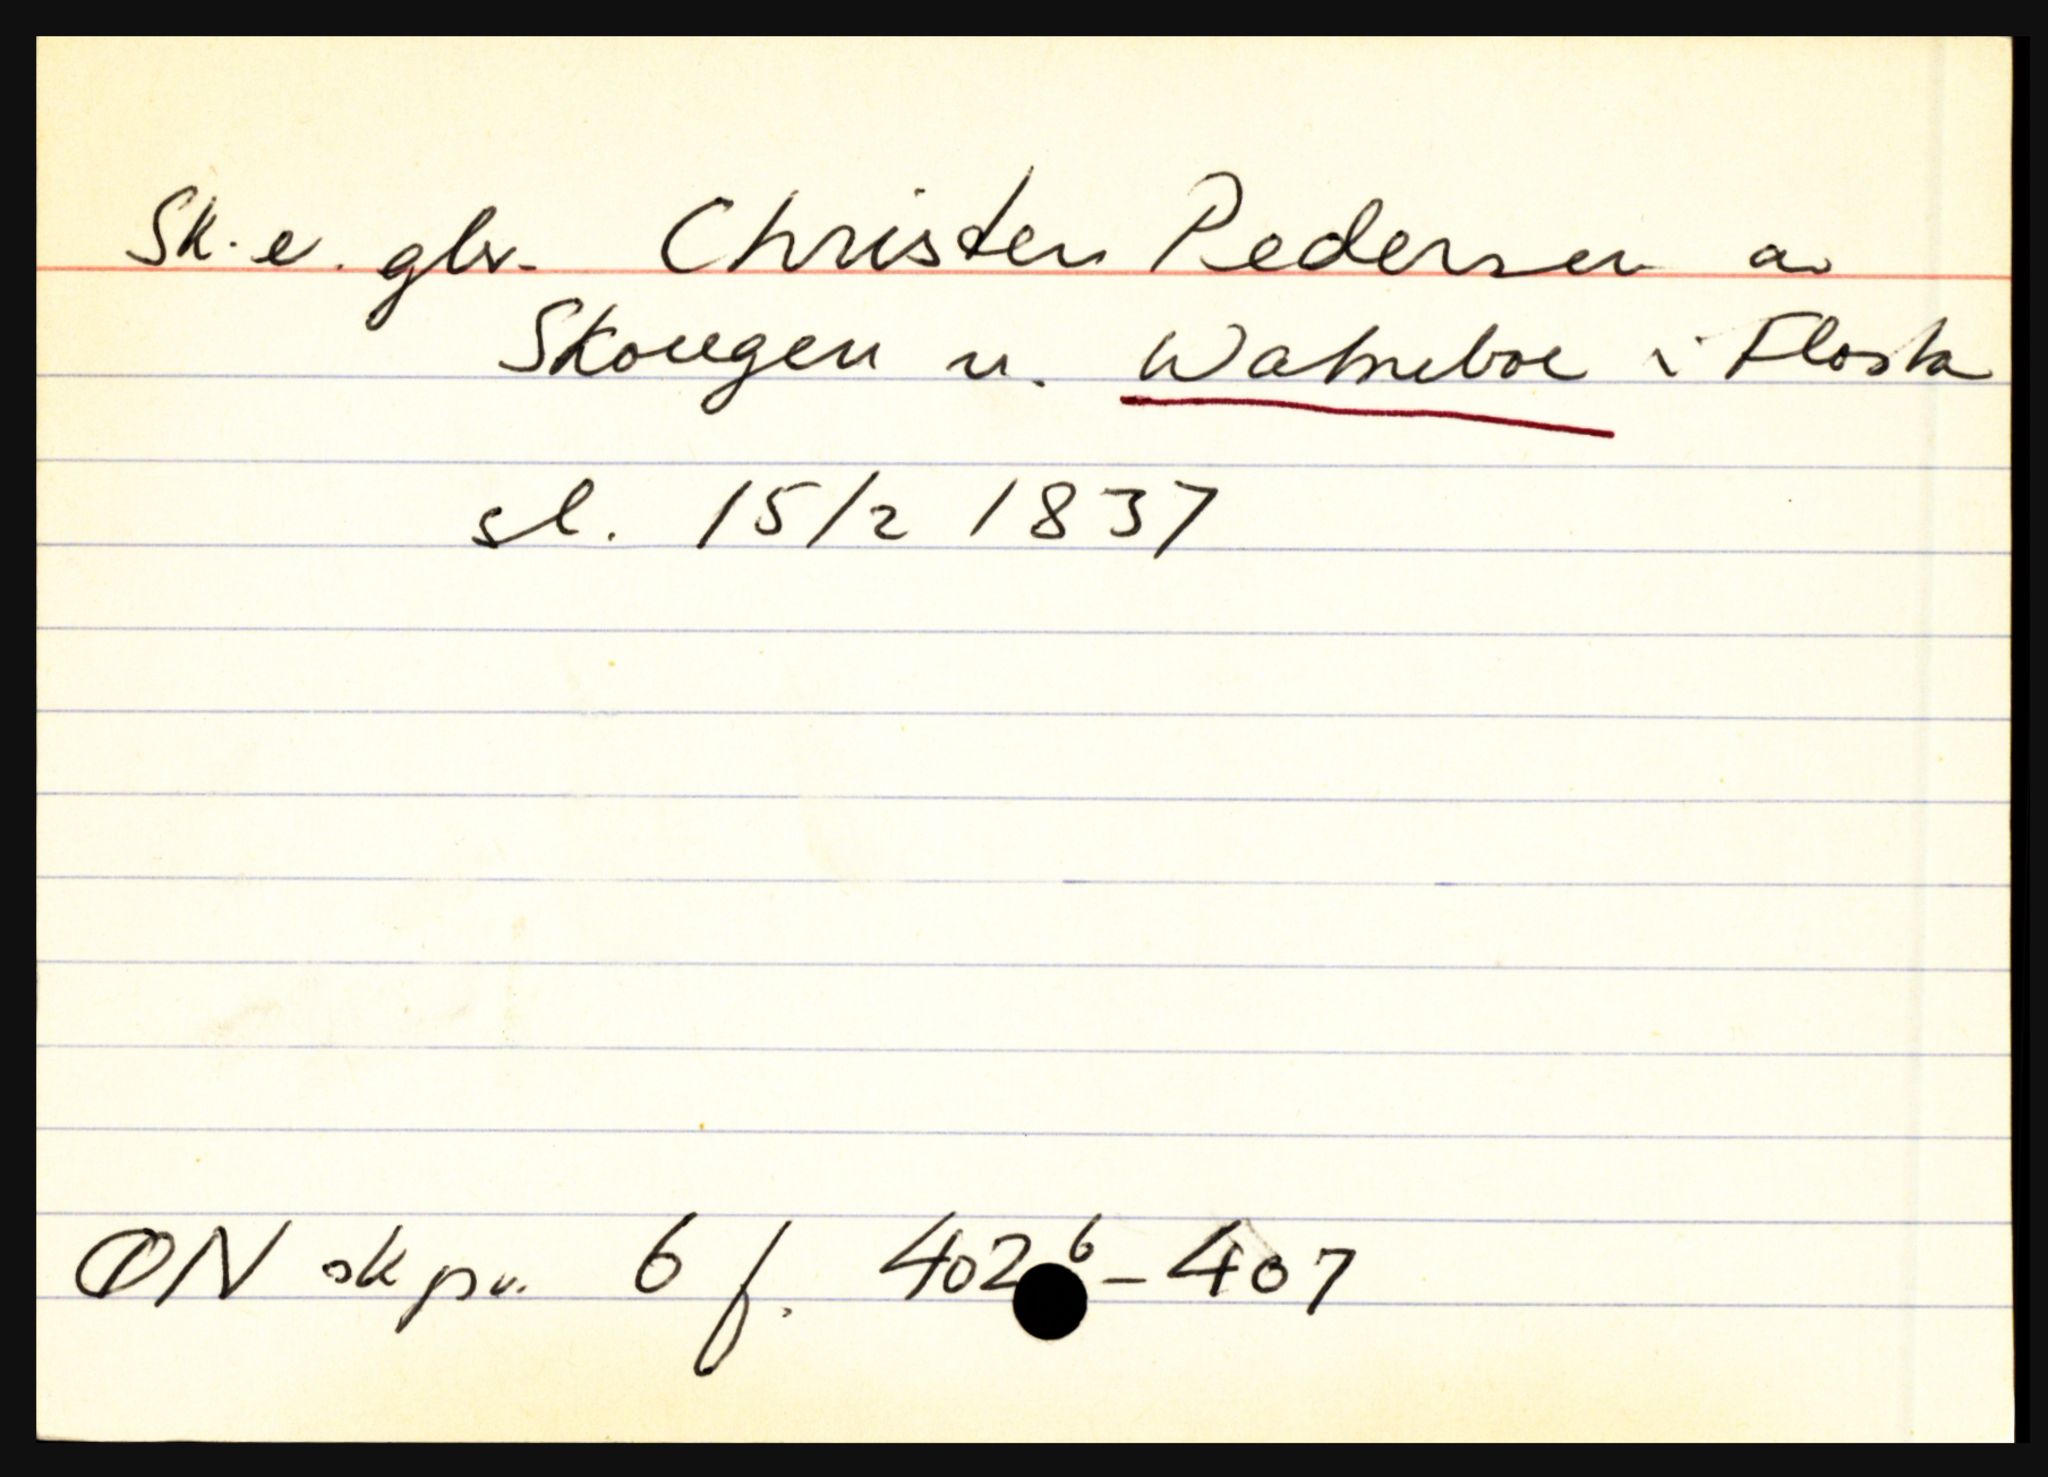 Sk. e. glr. Christen Pedersen a.
Skougen u. Watneboe i Flosta
sl. 15/2 1837
ØN skpr. 6 f. 402 b - 407